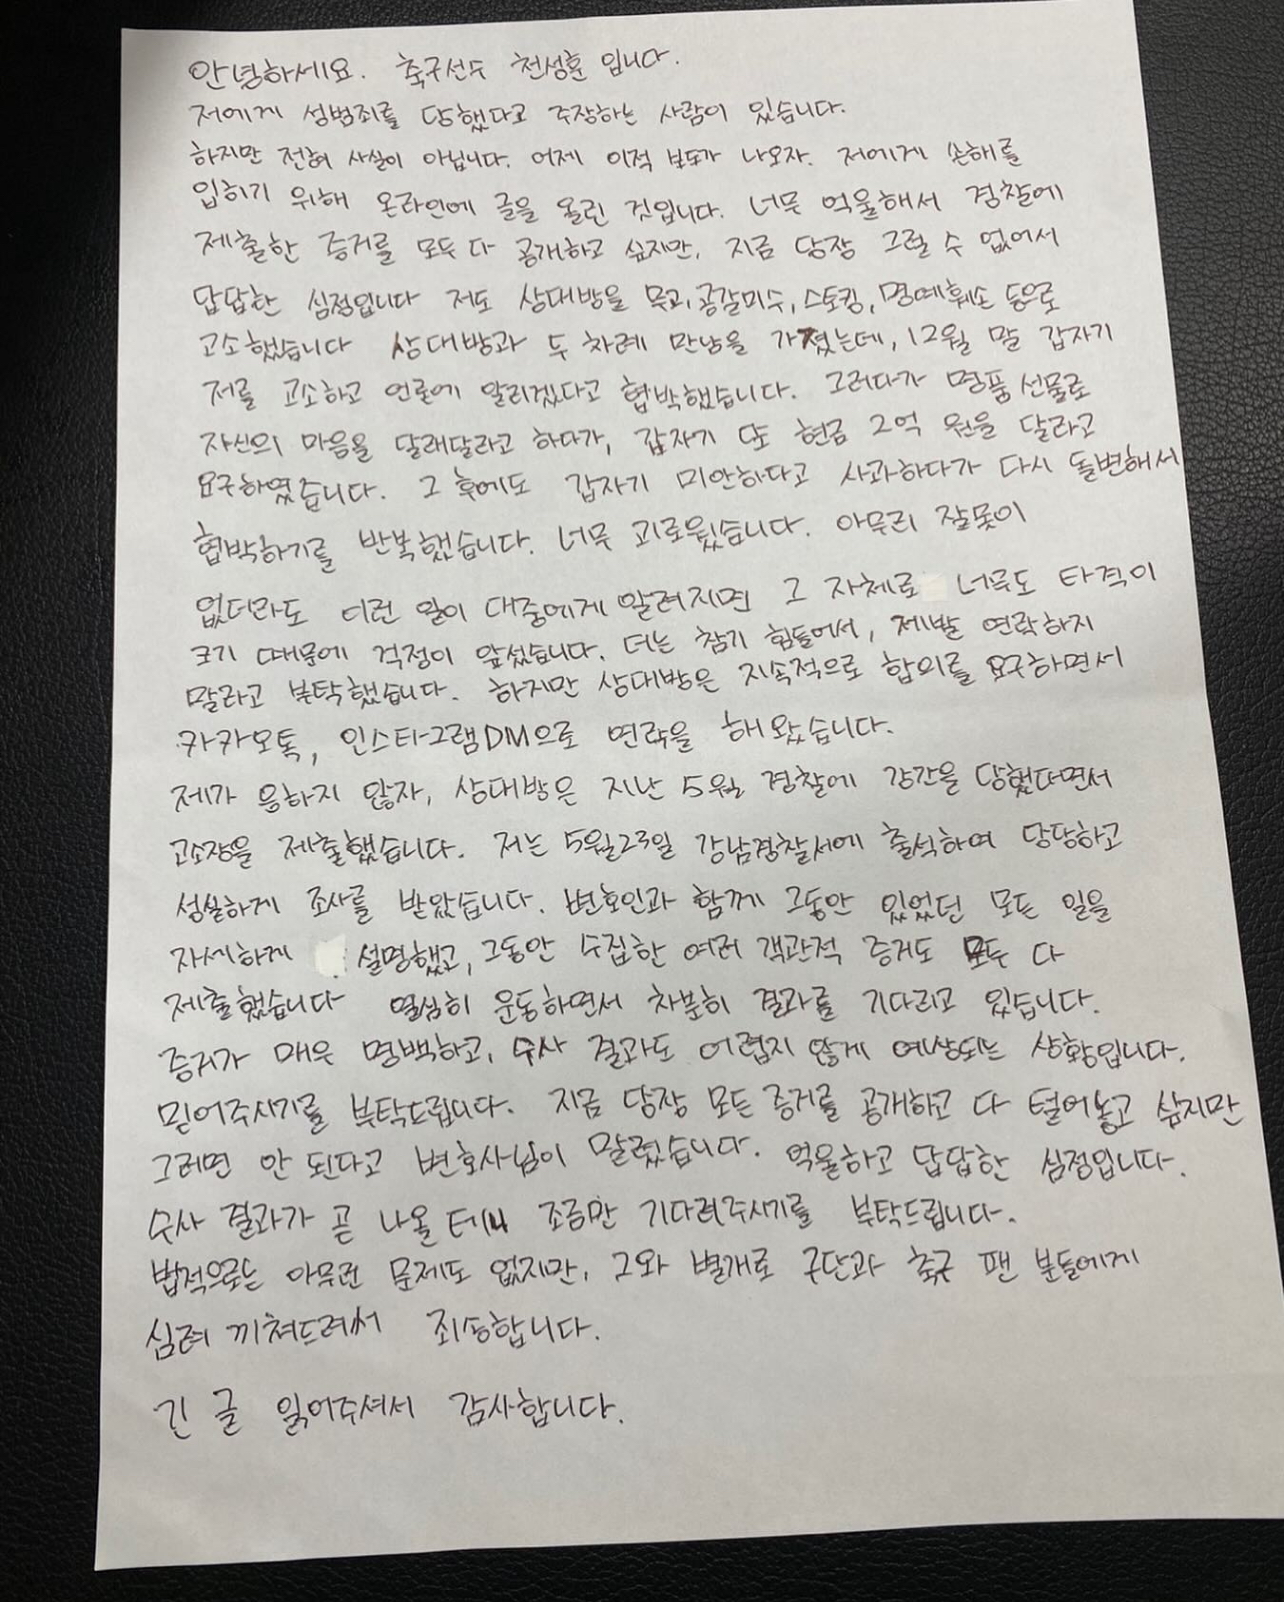 안녕하세요. 축구선수 천성훈 입니다.
저에게 성범죄를 당했다고 주장하는 사람이 있습니다.
하지만 전혀 사실이 아닙니다. 어제 이적 보도가 나오자. 저에게 손해를
입히기 위해 온라인에 글을 올린 것입니다. 너무 억울해서 경찰에
제출한 증거를 모두 다 공개하고 싶지만, 지금 당장 그럴 수 없어서
답답한 심정입니다 저도 상대방을 무고, 공갈미수, 스토킹, 명예훼손 등으로
고소했습니다 상대방과 두 차례 만남을 가졌는데, 12월 말 갑자기
저를 고소하고 언론에 알리겠다고 협박했습니다. 그러다가 명품 선물로
자신의 마음을 달래달라고 하다가, 갑자기 또 현금 2억 원을 달라고
요구하였습니다. 그 후에도 갑자기 미안하다고 사과하다가 다시 돌변해서
협박하기를 반복했습니다. 너무 괴로웠습니다. 아무리 잘못이
없더라도 이런 일이 대중에게 알려지면 그 자체로 너무도 타격이
크기 때문에 걱정이 앞섰습니다. 더는 참기 힘들어서, 제발 연락하지
말라고 부탁했습니다. 하지만 상대방은 지속적으로 합의를 요구하면서
카카오톡, 인스타그램DM으로 연락을 해왔습니다.
제가 응하지 않자, 상대방은 지난 5월 경찰에 강간을 당했다면서
고소장을 제출했습니다. 저는 5월23일 강남경찰서에 출석하여 당당하고
성실하게 조사를 받았습니다. 변호인과 함께 그동안 있었던 모든 일을
자세하게 설명했고, 그동안 수집한 여러 객관적 증거도 모두 다
제출했습니다 열심히 운동하면서 차분히 결과를 기다리고 있습니다.
증거가 매우 명백하고, 수사 결과도 어렵지 않게 예상되는 상황입니다.
믿어주시기를 부탁드립니다. 지금 당장 모든 증거를 공개하고 다 털어놓고 싶지만
그러면 안 된다고 변호사님이 말렸습니다. 억울하고 답답한 심정입니다.
수사 결과가 곧 나올 테니 조금만 기다려주시기를 부탁드립니다.
법적으로는 아무런 문제도 없지만, 그와 별개로 구단과 축구 팬 분들에게
심려 끼쳐드려서 죄송합니다.
긴 글 읽어주셔서 감사합니다.